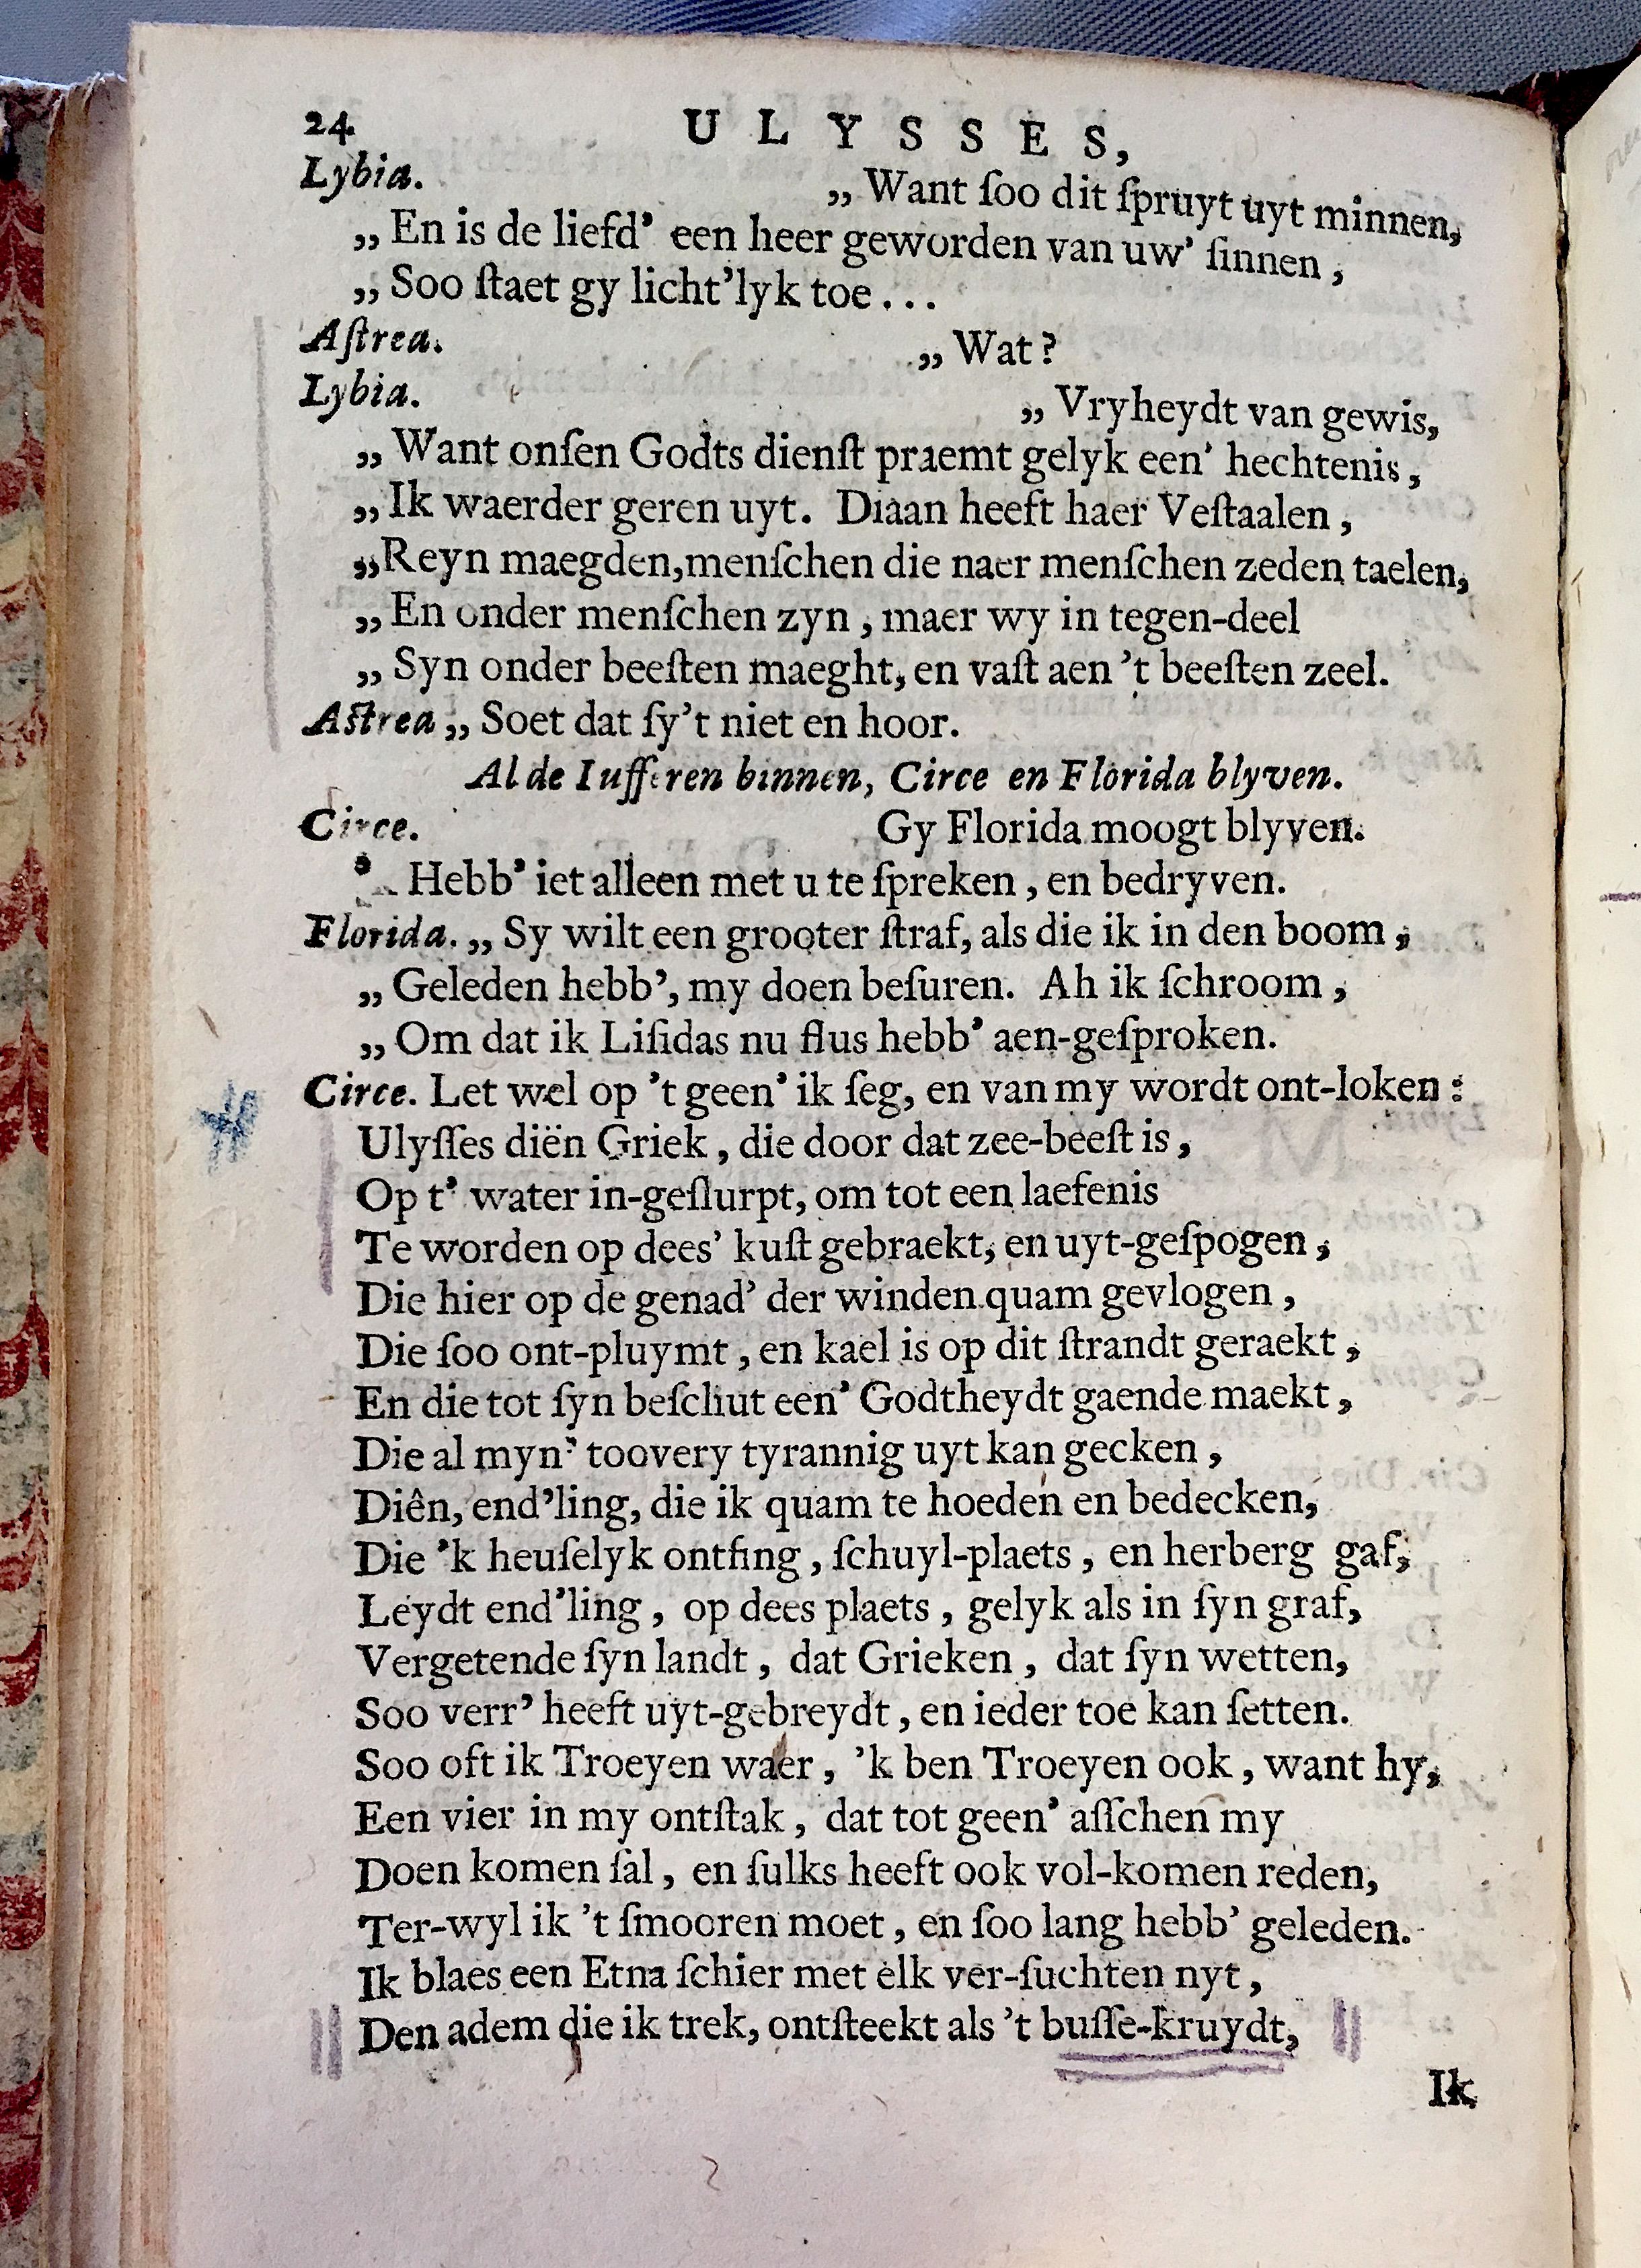 24 ULYSSES,
Lybia. „ Want ſoo dit ſpruyt uyt minnen,
„ En is de liefd' een heer geworden van uw' ſinnen,
„ Soo ſtaet gy licht'lyk toe...
Aſtrea. „ Wat?
Lybia. „ Vryheydt van gewis,
„ Want onſen Godts dienſt praemt gelyk een' hechtenis,
„ Ik waerder geren uyt. Diaan heeft haer Veſtaalen,
„ Reyn maegden, menſchen die naer menſchen zeden taelen,
„ En onder menſchen zyn, maer wy in tegen-deel
„ Syn onder beeſten maeght, en vaſt aen 't beeſten zeel.
Aſtrea „ Soet dat ſy't niet en hoor.
Al de Iufferen binnen, Circe en Florida blyven.
Circe. Gy Florida moogt blyven.
Hebb' iet alleen met u te ſpreken, en bedryven.
Florida. „ Sy wilt een grooter ſtraf, als die ik in den boom,
„ Geleden hebb', my doen beſuren. Ah ik ſchroom,
„ Om dat ik Liſidas nu flus hebb' aen-geſproken.
Circe. Let wel op 't geen' ik ſeg, en van my wordt ont-loken:
Ulyſſes diën Griek, die door dat zee-beeſt is,
Op t' water in-geſlurpt, om tot een laefenis
Te worden op dees' kuſt gebraekt, en uyt-geſpogen,
Die hier op de genad' der winden quam gevlogen,
Die ſoo ont-pluymt, en kael is op dit ſtrandt geraekt,
En die tot ſyn beſchut een' Godtheydt gaende maekt,
Die al myn' toovery tyrannig uyt kan gecken,
Diên, end'ling, die ik quam te hoeden en bedecken,
Die 'k heuſelyk ontfing, ſchuyl-plaets, en herberg gaf,
Leydt end'ling, op dees plaets, gelyk als in ſyn graf,
Vergetende ſyn landt, dat Grieken, dat ſyn wetten,
Soo verr' heeft uyt-gebreydt, en ieder toe kan ſetten.
Soo oft ik Troeyen waer, 'k ben Troeyen ook, want hy,
Een vier in my ontſtak, dat tot geen' aſſchen my
Doen komen ſal, en ſulks heeft ook vol-komen reden,
Ter-wyl ik 't ſmooren moet, en ſoo lang hebb' geleden.
Ik blaes een Etna ſchier met elk ver-ſuchten nyt,
Den adem die ik trek, ontſteekt als 't buſſe-kruydt,
Ik